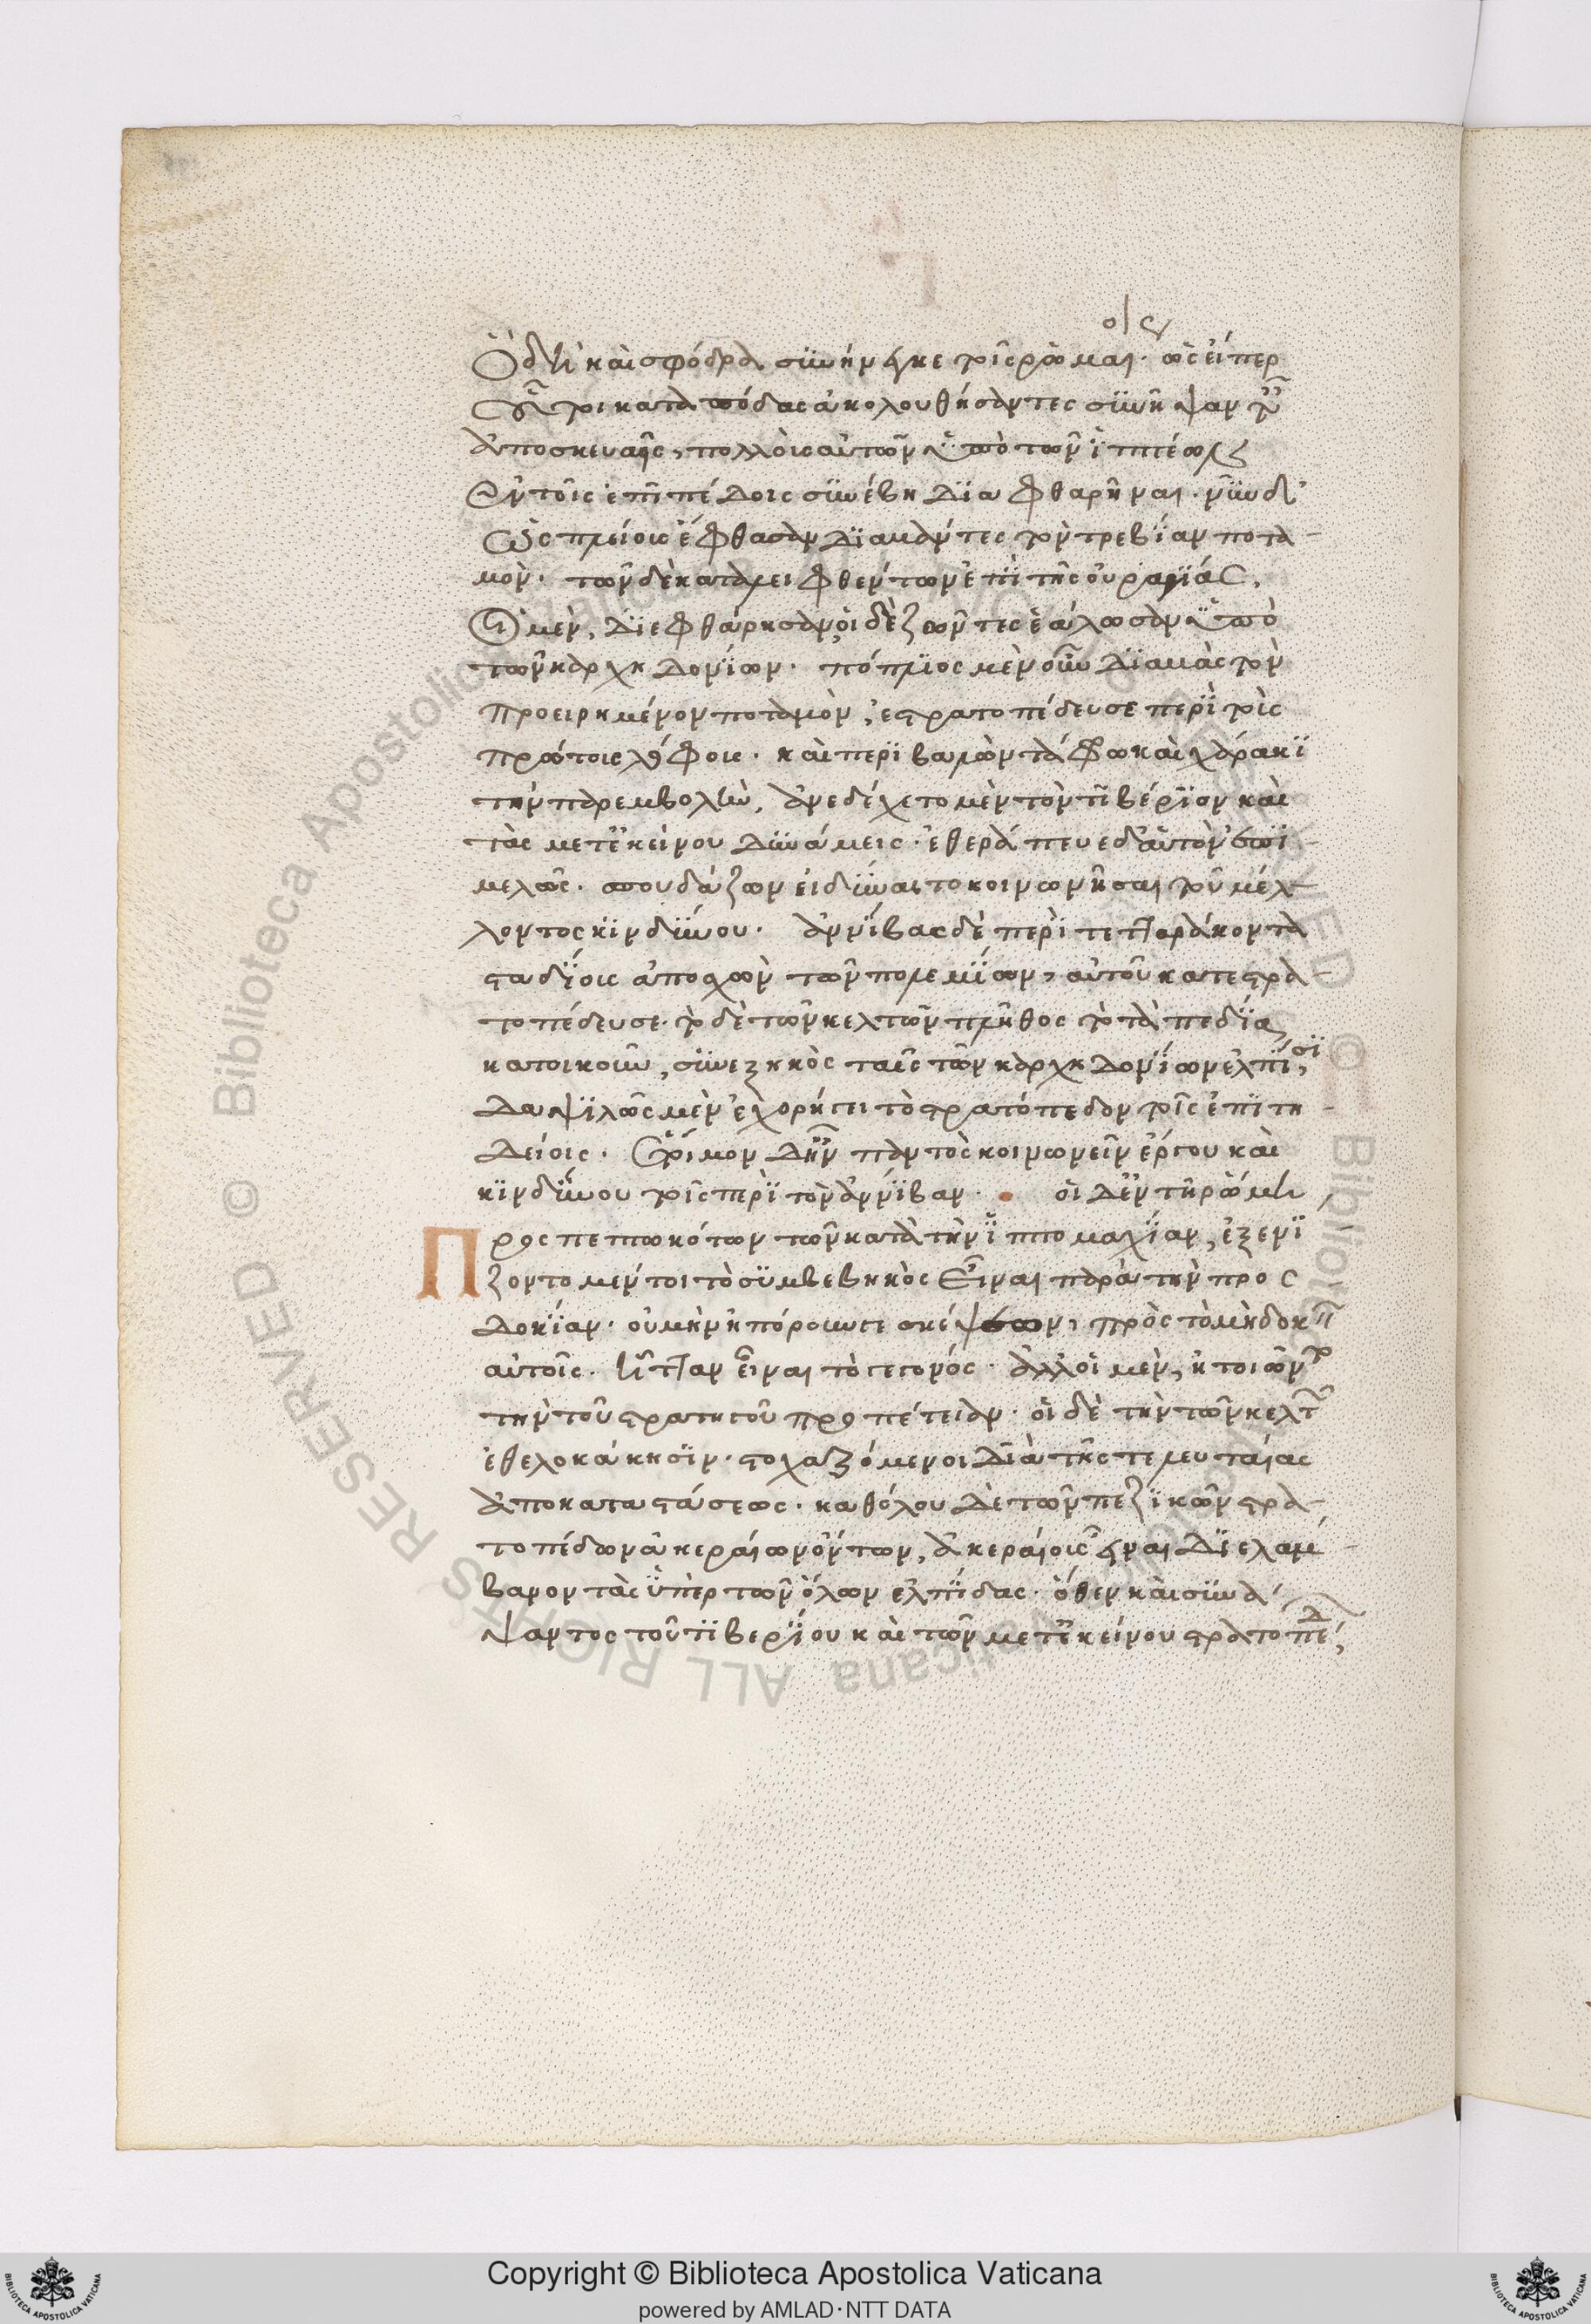 ὃ δὴ καὶ σφόδρα συνήνεγκε τοῖς ῥωμαίοις· ὡς εἴπερ
οὗτοι κατὰ πόδας ἀκολουθήσαντες συνῆψαν ταῖς
ἀποσκευαῖς, πολλοὺς αὐτῶν ὑπὸ τῶν ἱππέων
ἐν τοῖς ἐπιπέδοις συνέβη διαφθαρῆναι. νῦν δ'
ὡς πλείους ἔφθασαν διαβάντες τὸν τρεβίαν ποτα-
μὸν. τῶν δὲ καταλειφθέντων ἐπὶ τῆς οὐραγίας,
οἱ μὲν, διεφθάρησαν, οἱ δὲ ζῶντες ἑάλωσαν ὑπὸ
τῶν καρχηδονίων. πόπλιος μὲν οὖν διαβὰς τὸν
προειρημένον ποταμὸν, ἐστρατοπέδευσε περὶ τοὺς
πρώτους λόφους. καὶ περιβαλὼν τάφρῳ καὶ χάρακι
τὴν παρεμβολὴν, ἀνεδέχετο μὲν τὸν τιβέριον καὶ
τὰς μετ' ἐκείνου δυνάμεις. ἐθεράπευε δ' αὑτὸν ἐπι-
μελῶς. σπουδάζων εἰ δύναιτο κοινωνῆσαι τοῦ μέλ-
λοντος κινδύνου. ἀννίβας δὲ περὶ τετταράκοντα
σταδίους ἀποσχὼν τῶν πολεμίων, αὐτοῦ κατεστρα-
τοπέδευσε. τὸ δὲ τῶν κελτῶν πλῆθος τὸ τὰ πεδία
κατοικοῦν, συνεξεστηκὸς ταῖς τῶν καρχηδονίων ἐλπίσι,
δαψιλῶς μὲν ἐχορήγει τὸ στρατόπεδον τοῖς ἐπιτη-
δείοις. ἕτοιμον δ' ἦν παντὸς κοινωνεῖν ἔργου καὶ
κινδύνου τοῖς περὶ τὸν ἀννίβαν. οἱ δ' ἐν τῇ ῥώμῃ
προσπεπτωκότων τῶν κατὰ τὴν ἱππομαχίαν, ἐξενί
ζοντο μέν τοι τὸ συμβεβηκὸς εἶναι παρὰ τὴν προσ
δοκίαν. οὐ μὴν ἠπόρουν γε σκέψεων, πρὸς τὸ μὴ δοκεῖν
αὐτοῖς ἧτταν εἶναι τὸ γεγονός. ἀλλ' οἱ μὲν, ᾐτιῶντο
τὴν τοῦ στρατηγοῦ προπέτειαν. οἱ δὲ τὴν τῶν κελτῶν
ἐθελοκάκησιν. στοχαζόμενοι διὰ τῆς τελευταίας
ἀποκαταστάσεως. καθόλου δὲ τῶν πεζικῶν στρα-
τοπέδων ἀκεραίων ὄντων, ἀκεραίους εἶναι διελάμ-
βανον τὰς ὑπὲρ τῶν ὅλων ἐλπίδας. ὅθεν καὶ συνά-
ψαντος τοῦ τιβερίου καὶ τῶν μετ' ἐκείνου στρατοπέδ
Copyright © Biblioteca Apostolica Vaticana
powered by AMLAD·NTT DATA